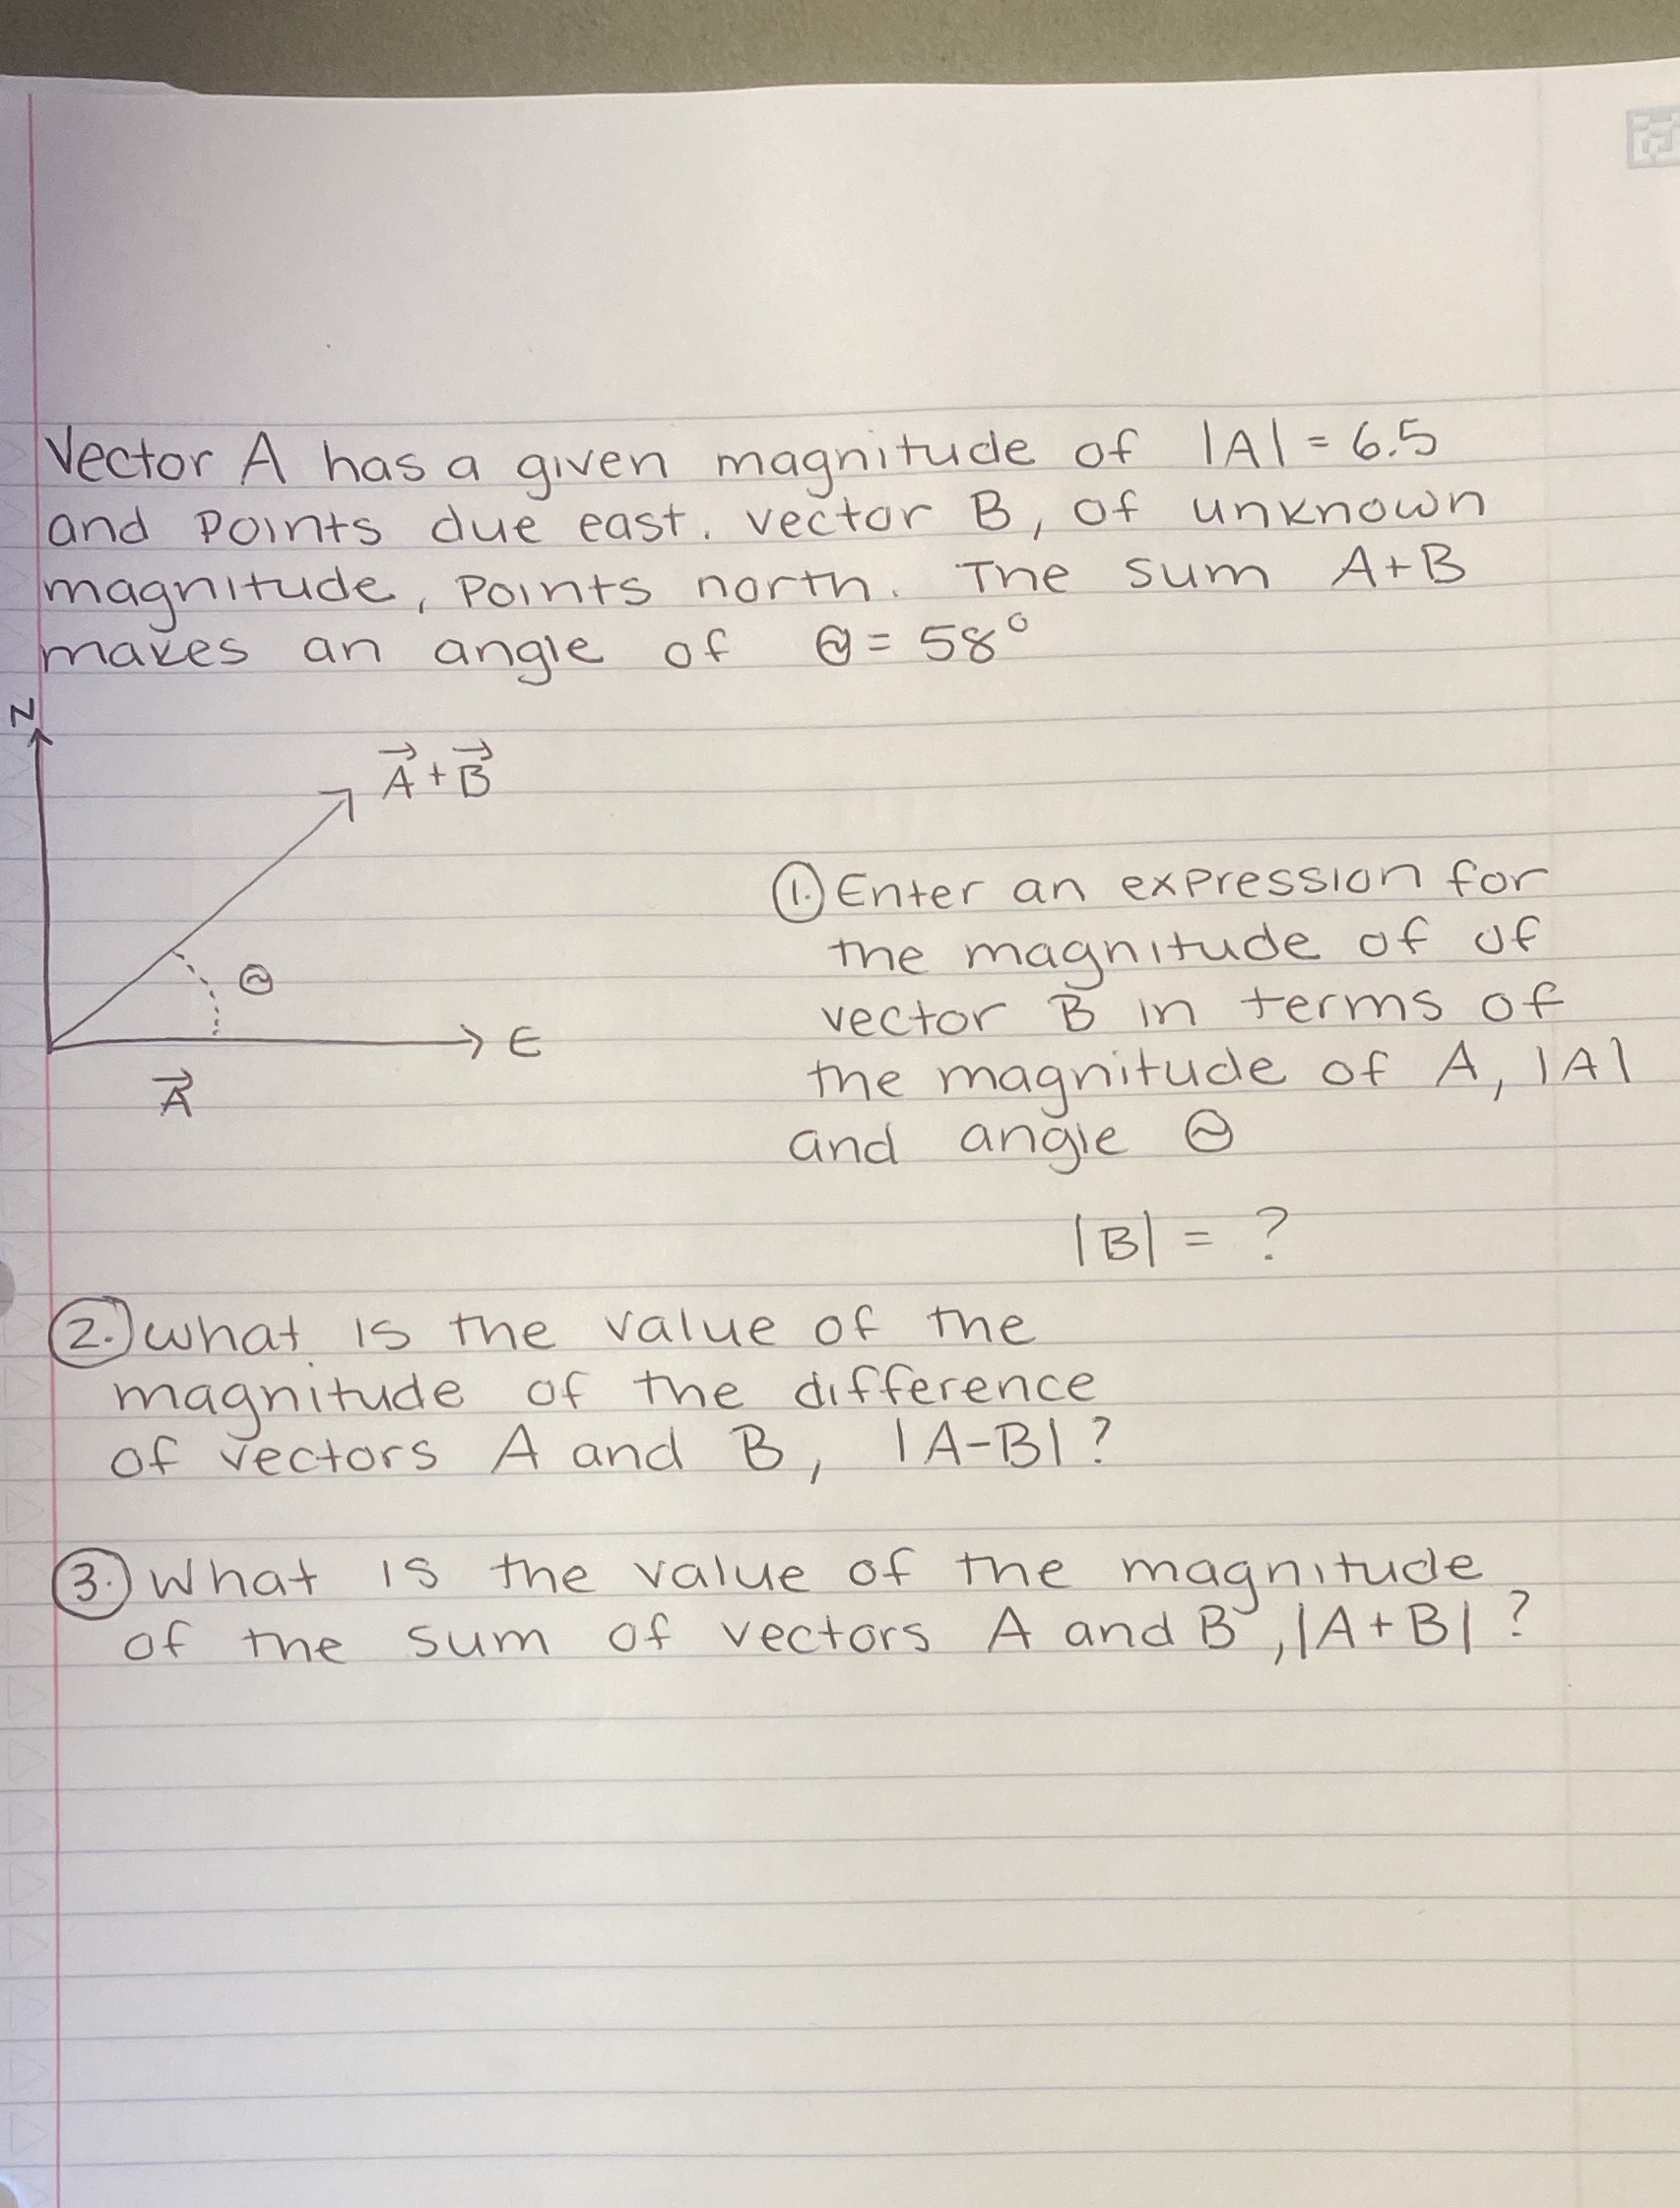 Vector A has a given magnitude of |A| = 6.5
and Points due east. vector B, of unknown
magnitude, Points north. The sum A+B
makes an angle of Θ = 58°
N
A⃗ + B⃗
Θ
E
A⃗
①. Enter an expression for
the magnitude of of
vector B in terms of
the magnitude of A, |A|
and angle Θ
|B| = ?
②. what is the value of the
magnitude of the difference
of vectors A and B, |A-B| ?
③. What is the value of the magnitude
of the sum of vectors A and B, |A+B| ?